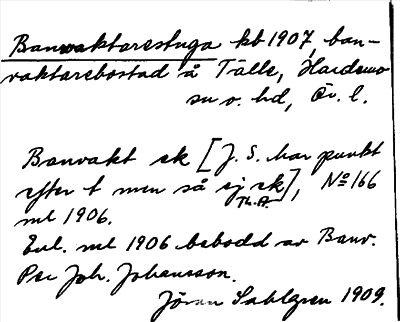 Banvaktarestuga kb 1907, ban-
vaktarebostad å Tälle, Hardemo
sn o. hd, Ör. l.
Banvakt ek [J. S. har punkt
efter t men så ej ek], No 166
Th.A.
ml 1906.
Enl. ml 1906 bebodd av Banv.
Per Joh. Johansson.
Jöran Sahlgren 1909.